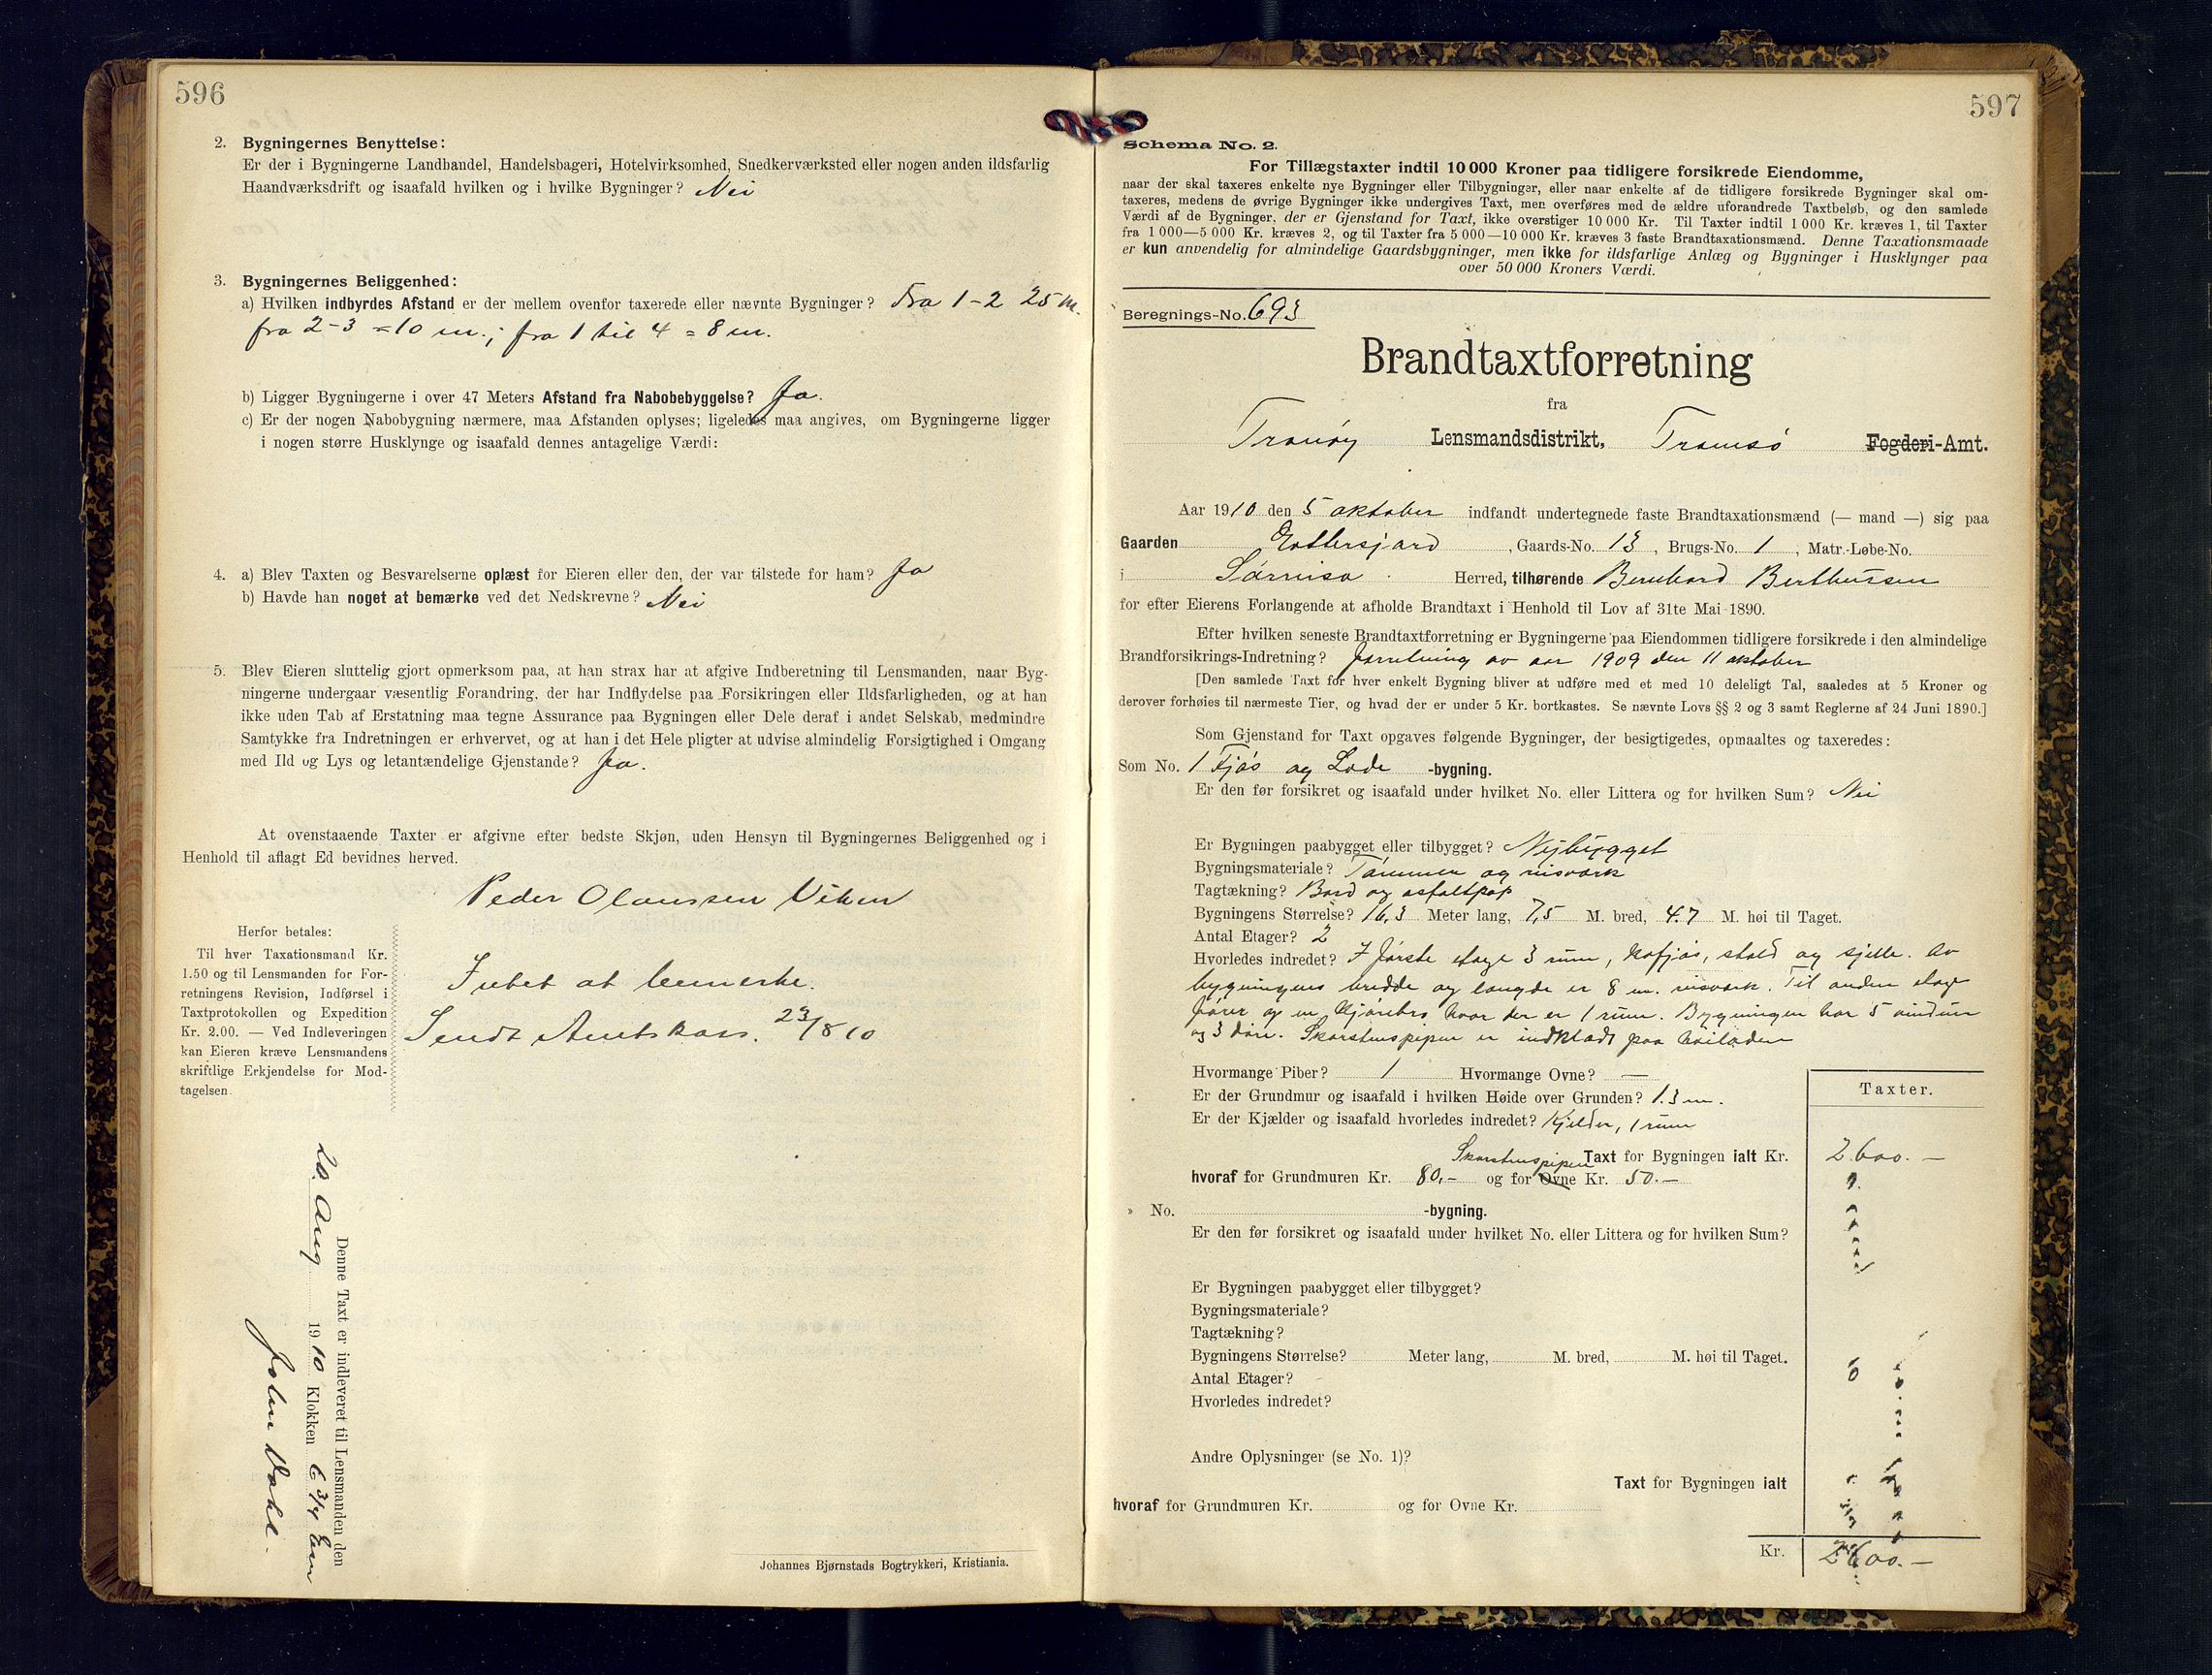 596
2. Bygningernes Benyttelse:
Er der i Bygningerne Landhandel, Handelsbageri, Hotelvirksomhed, Snedkerværksted eller nogen anden ildsfarlig
Haandværksdrift og isaafald hvilken og i hvilke Bygninger? Nei
3. Bygningernes Beliggenhed:
a) Hvilken indbyrdes Afstand er der mellem ovenfor taxerede eller nævnte Bygninger? Fra 1-2 25 m.
fra 2-3 = 10 m.; fra 1 til 4 = 8 m.
b) Ligger Bygningerne i over 47 Meters Afstand fra Nabobebyggelse? Ja.
c) Er der nogen Nabobygning nærmere, maa Afstanden oplyses; ligeledes maa angives, om Bygningerne ligger
i nogen større Husklynge og isaafald dennes antagelige Værdi:
4. a) Blev Taxten og Besvarelserne oplæst for Eieren eller den, der var tilstede for ham? Ja
b) Havde han noget at bemærke ved det Nedskrevne? Nei
5. Blev Eieren sluttelig gjort opmerksom paa, at han strax har at afgive Indberetning til Lensmanden, naar Byg-
ningerne undergaar væsentlig Forandring, der har Indflydelse paa Forsikringen eller Ildsfarligheden, og at han
ikke uden Tab af Erstatning maa tegne Assurance paa Bygningen eller Dele deraf i andet Selskab, medmindre
Samtykke fra Indretningen er erhvervet, og at han i det Hele pligter at udvise almindelig Forsigtighed i Omgang
med Ild og Lys og letantændelige Gjenstande? Ja.
At ovenstaaende Taxter er afgivne efter bedste Skjøn, uden Hensyn til Bygningernes Beliggenhed og i
Henhold til aflagt Ed bevidnes herved.
Peder Olaussen Viken
Herfor betales:
Til hver Taxationsmand Kr.
1.50 og til Lensmanden for For-
retningens Revision, Indførsel i
Taxtprotokollen og Expedition
Kr. 2.00. — Ved Indleveringen
kan Eieren kræve Lensmandens
skriftlige Erkjendelse for Mod-
tagelsen.
Intet at bemerke.
Sendt Amtskass. 23/8 10
Denne Taxt er indleveret til Lensmanden den
20 Aug 1910 Klokken 6 3/4 Em
John Dahl.
Johannes Bjørnstads Bogtrykkeri, Kristiania.
597
Schema No. 2.
For Tillægstaxter indtil 10 000 Kroner paa tidligere forsikrede Eiendomme,
naar der skal taxeres enkelte nye Bygninger eller Tilbygninger, eller naar enkelte af de tidligere forsikrede Bygninger skal om-
taxeres, medens de øvrige Bygninger ikke undergives Taxt, men overføres med de ældre uforandrede Taxtbeløb, og den samlede
Værdi af de Bygninger, der er Gjenstand for Taxt, ikke overstiger 10 000 Kr. Til Taxter indtil 1 000 Kr. kræves 1, til Taxter
fra 1 000—5 000 Kr. kræves 2, og til Taxter fra 5 000—10 000 Kr. kræves 3 faste Brandtaxationsmænd. Denne Taxationsmaade
er kun anvendelig for almindelige Gaardsbygninger, men ikke for ildsfarlige Anlæg og Bygninger i Husklynger paa
over 50 000 Kroners Værdi.
Beregnings-No. 693
Brandtaxtforretning
fra
Tranøy Lensmandsdistrikt, Tromsø Fogderi-Amt.
Aar 1910 den 5 oktober indfandt undertegnede faste Brandtaxationsmænd (— mand —) sig paa
Gaarden , Gaards-No. 13, Brugs-No. 1, Matr.-Løbe-No.
i Sørreisa Herred, tilhørende Bernhard Berthussen
for efter Eierens Forlangende at afholde Brandtaxt i Henhold til Lov af 31te Mai 1890.
Efter hvilken seneste Brandtaxtforretning er Bygningerne paa Eiendommen tidligere forsikrede i den almindelige
Brandforsikrings-Indretning? forretning av aar 1909 den 11 oktober
[Den samlede Taxt for hver enkelt Bygning bliver at udføre med et med 10 deleligt Tal, saaledes at 5 Kroner og
derover forhøies til nærmeste Tier, og hvad der er under 5 Kr. bortkastes. Se nævnte Lovs §§ 2 og 3 samt Reglerne af 24 Juni 1890.]
Som Gjenstand for Taxt opgaves følgende Bygninger, der besigtigedes, opmaaltes og taxeredes:
Som No. 1 Fjøs og Lade -bygning.
Er den før forsikret og isaafald under hvilket No. eller Littera og for hvilken Sum? Nei
Er Bygningen paabygget eller tilbygget? Nybygget
Bygningsmateriale? Tømmer og risverk
Tagtækning? Bord og asfaltpap
Bygningens Størrelse? 16,3 Meter lang, 7,5 M. bred, 4.7 M. høi til Taget.
Antal Etager? 2
Hvorledes indredet? I første etage 3 rum, kofjøs, stald og sjelle. Av
bygningens bredde og længde er 8 m. risverk. Til anden etage
fører og en kjørebro hvor der er 1 rum. Bygningen har 5 vinduer
og 3 døre. Skorstenspipen er indklædt paa høiladen
Hvormange Piber? 1 Hvormange Ovne? —
Er der Grundmur og isaafald i hvilken Høide over Grunden? 1.3 m.
Er der Kjælder og isaafald hvorledes indredet? Kjelder, 1 rum
Taxter.
Taxt for Bygningen ialt Kr. 2600.—
Skorstenspipen
hvoraf for Grundmuren Kr. 80.- og for Ovne Kr. 50.—
» No. -bygning.
Er den før forsikret og isaafald under hvilket No. eller Littera og for hvilken Sum?
Er Bygningen paabygget eller tilbygget?
Bygningsmateriale?
Tagtækning?
Bygningens Størrelse? Meter lang, M. bred, M. høi til Taget.
Antal Etager?
Hvorledes indredet?
Andre Oplysninger (se No. 1)?
Taxt for Bygningen ialt
hvoraf for Grundmuren Kr. og for Ovne Kr.
Kr. 2600.—